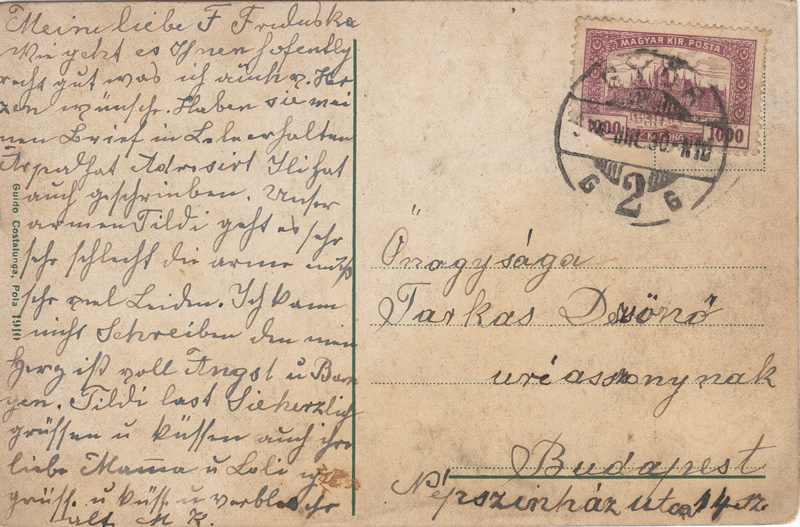 Meine liebe F Friduska
Wie geht es Ihnen hofently
recht gut was ich auch v. Her
zen wünsche. Haben sie mei
nen Brief in Lele erhalten
Arpad hat Adresirt Ili hat
auch geschrieben. Unser
armen Tildi geht es sehr
sehr schlecht die arme muß
sehr viel Leiden. Ich kann
nicht Schreiben den mein
Herz ist voll Angst u Ban
gen. Tildi last Sie herzlich
grüssen u küssen auch ihre
liebe Mama u Loli
grüss. u küss. u verbleibe ihr
alt. M K.
Guido Costalunga, Pola 1910
MAGYAR KIR. POSTA
1000 KORONA 1000
GYŐR
2
G G
Őnagysága
Farkas Dezsőnő
uriasszonynak
Budapest
Népszinház utca 14. sz.